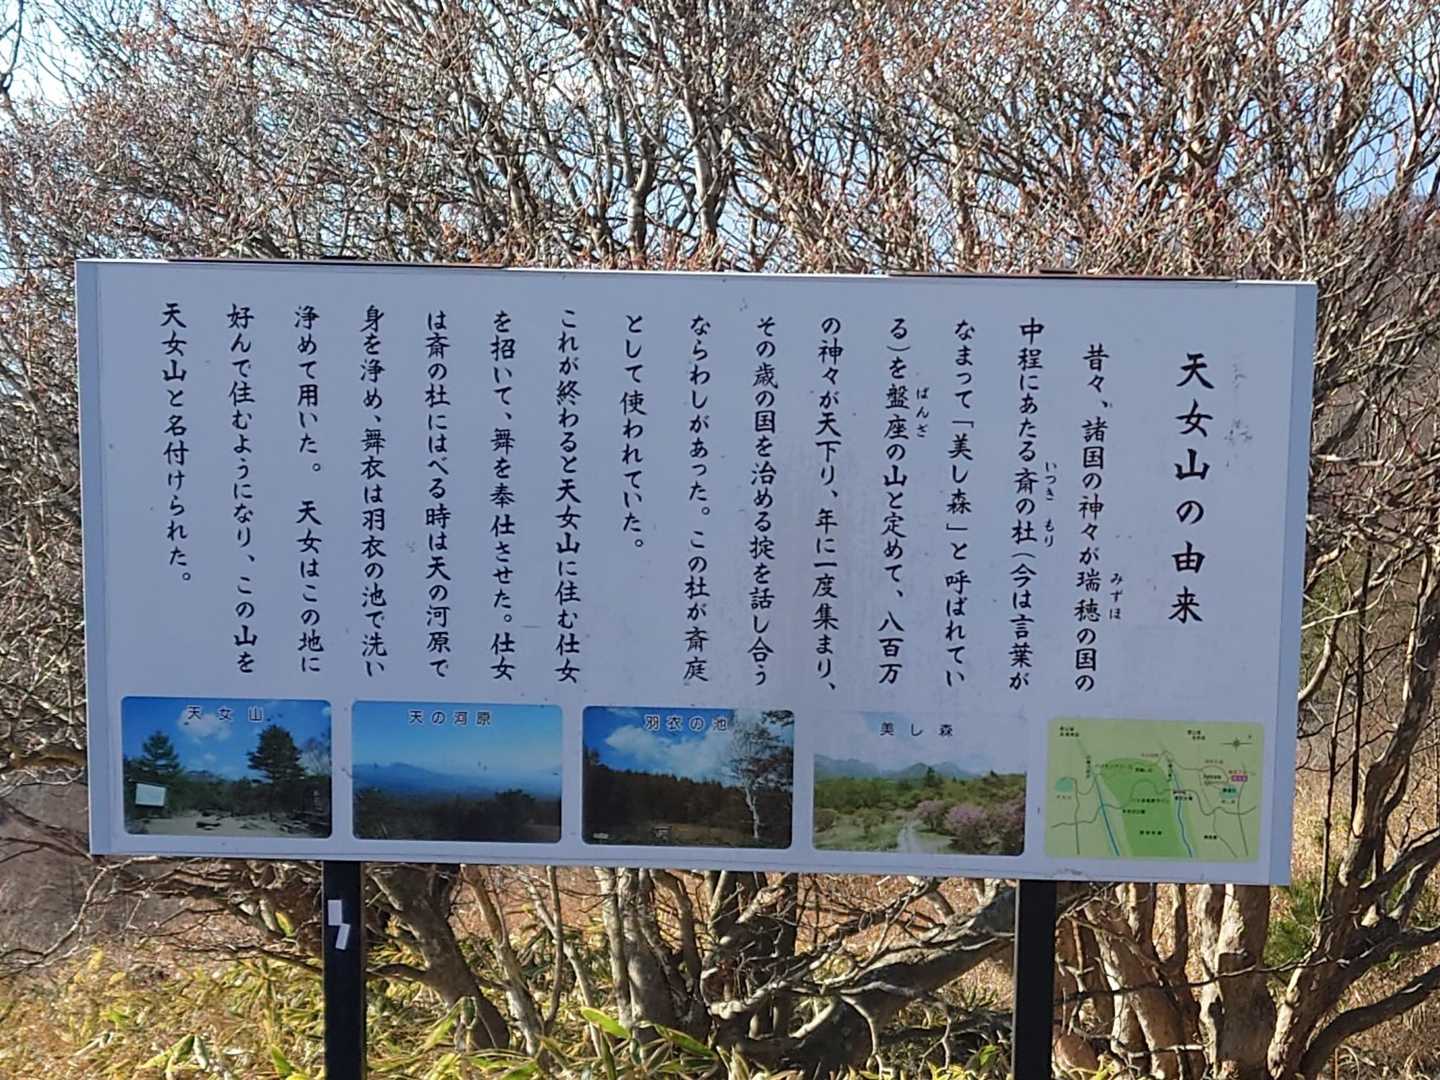 天女山の由来
昔々、諸国の神々が瑞穂の国の
みずほ
中程にあたる斎の杜（今は言葉が
いつき もり
なまって「美し森」と呼ばれてい
る）を盤座の山と定めて、八百万
ばんざ
の神々が天下り、年に一度集まり、
その歳の国を治める掟を話し合う
ならわしがあった。この杜が斎庭
として使われていた。
これが終わると天女山に住む仕女
を招いて、舞を奉仕させた。仕女
は斎の杜にはべる時は天の河原で
身を浄め、舞衣は羽衣の池で洗い
浄めて用いた。 天女はこの地に
好んで住むようになり、この山を
天女山と名付けられた。
天女山
天の河原
羽衣の池
美し森